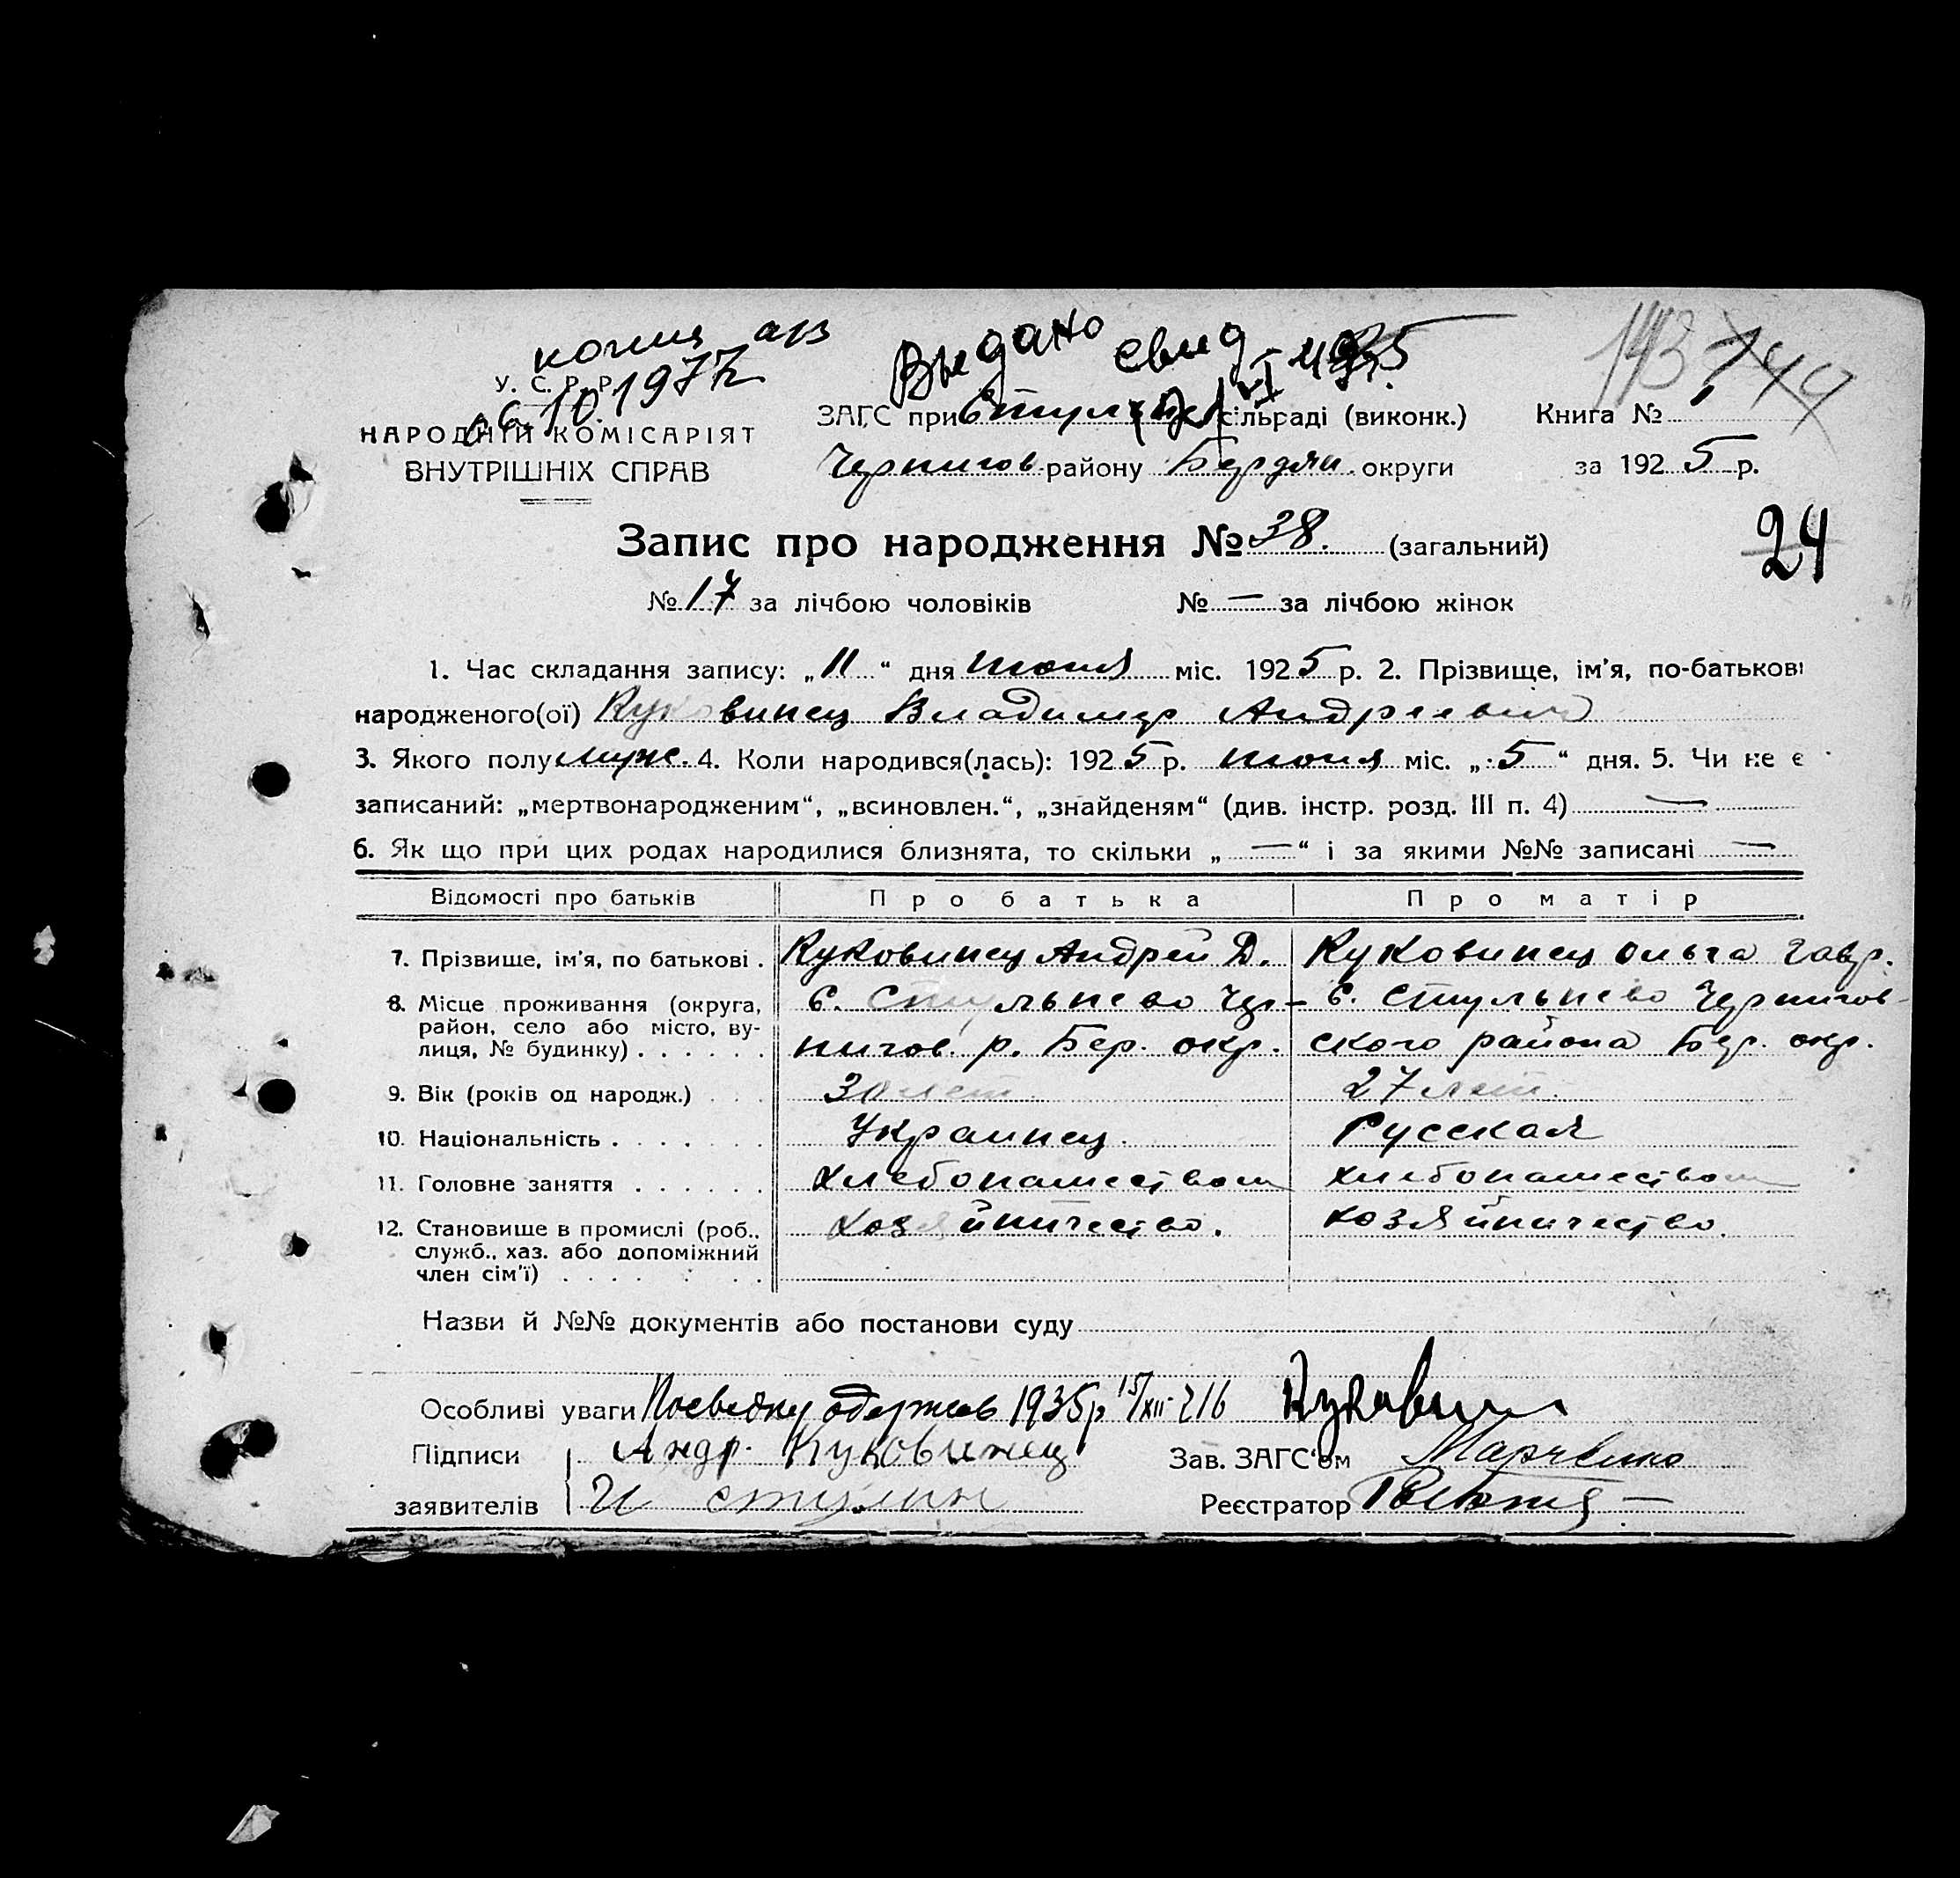 копия
06.10.1977
Выдано свид
143 144
У. С. Р. Р.
НАРОДНІЙ КОМІСАРІЯТ
ВНУТРІШНІХ СПРАВ
ЗАГС при сільраді (виконк.)
Чернигов. району Бердян. округи
Книга № 1
за 1925 р.
Запис про народження № 38. (загальний)
24
№ 17 за лічбою чоловіків № — за лічбою жінок
1. Час складання запису: „11“ дня июня міс. 1925 р. 2. Прізвище, ім'я, по-батькові
народженого(ої) Куковинец Владимир Андреевич
3. Якого полу муж. 4. Коли народився(лась): 1925 р. июня міс. „5“ дня. 5. Чи не є
записаний: „мертвонародженим“, „всиновлен.“, „знайденям“ (див. інстр. розд. III п. 4) —
6. Як що при цих родах народилися близнята, то скільки „—“ і за якими №№ записані —
Відомості про батьків Про батька Про матір
7. Прізвище, ім'я, по батькові . Куковинец Андрей Д. Куковинец Ольга Гавр.
8. Місце проживання (округа, район, село або місто, вулиця, № будинку) . . . . . . с. Стульнево Чернигов. р. Бер. окр. с. Стульнево Черниговского района Бер. окр.
9. Вік (років од народж.) . . . 30 лет 27 лет.
10. Національність . . . . . . Украинец. Русская
11. Головне заняття . . . . . . хлебопашеством хлебопашеством
12. Становище в промислі (роб., служб., хаз. або допоміжний член сім'ї) . . . . . . . хозяйничество. хозяйничество.
Назви й №№ документів або постанови суду
Особливі уваги Посвідку одержав 1935р 15/XII 216
Підписи Андр. Куковинец Зав. ЗАГС'ом
заявителів Реєстратор